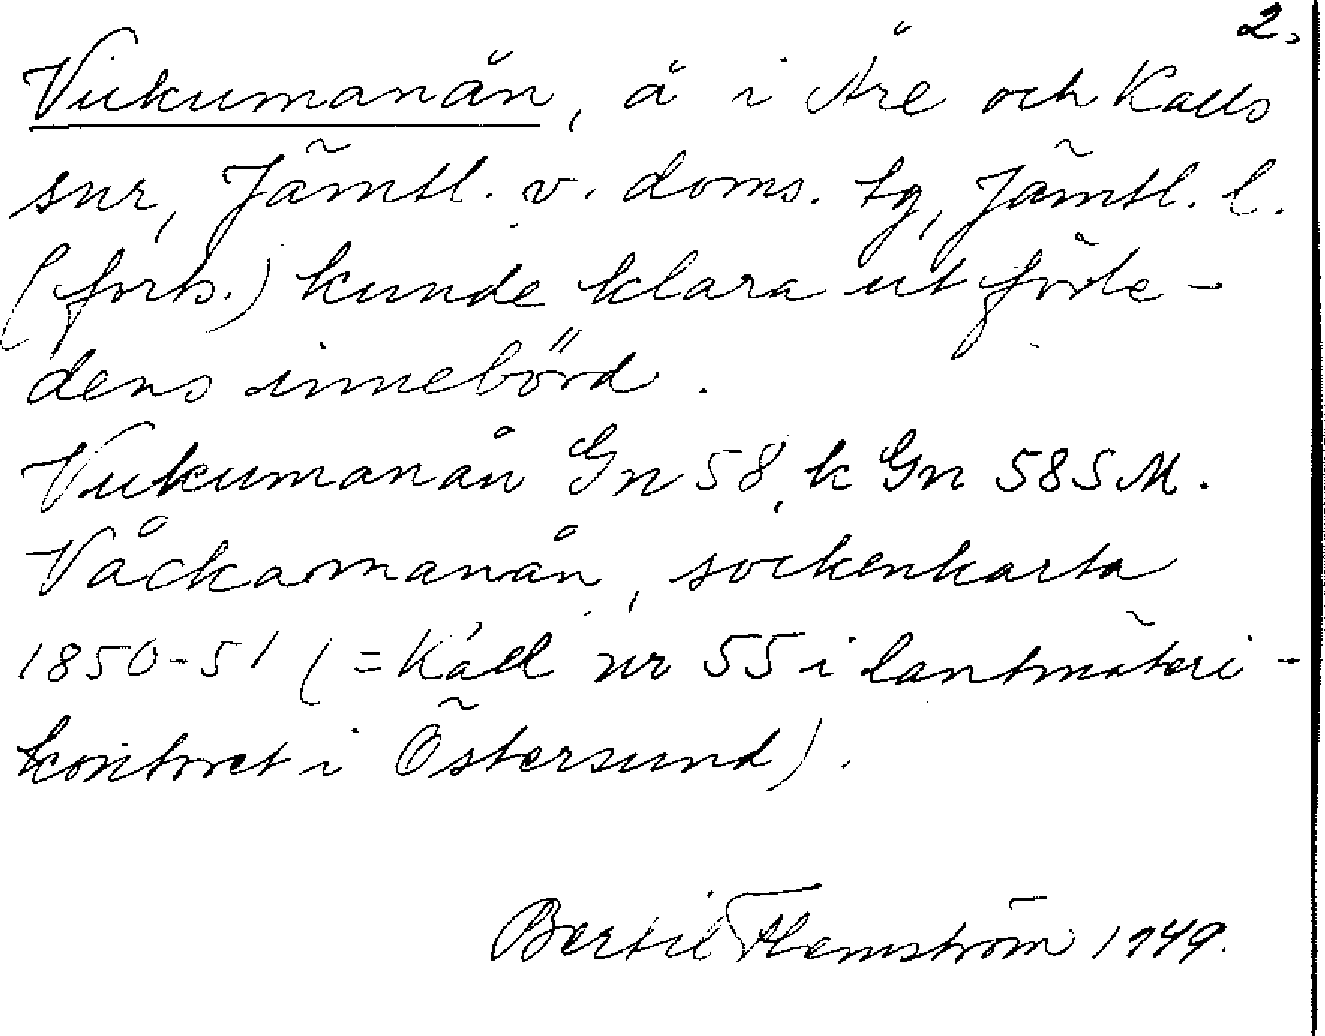 2.
Vukumanån, å i Åre och Kalls
snr, Jämtl. v. doms. tg, Jämtl. l.
(forts.) kunde klara ut före-
dens innebörd.
Vukumanån Gn 58, k Gn 58 SM.
Våckamanån, sockenkarta
1850-51 (= Kall nr 55 i lantmäteri-
kontoret i Östersund).
Bertil Flemström 1949.